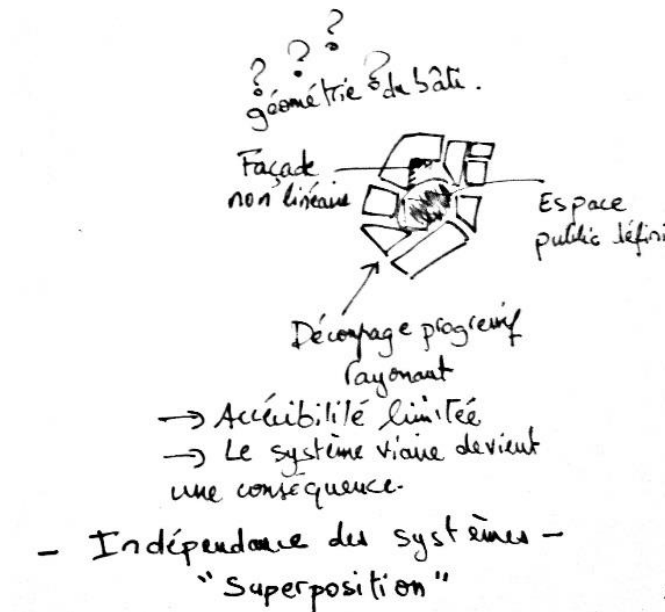 ? ? ?
géométrie ? du bâti.
Façade
non linéaire
Espace
public défini
Découpage progressif
rayonant
→ Accéssibilité limitée
→ Le système viaire devient
une conséquence.
- Indépendance des systèmes -
"Superposition"